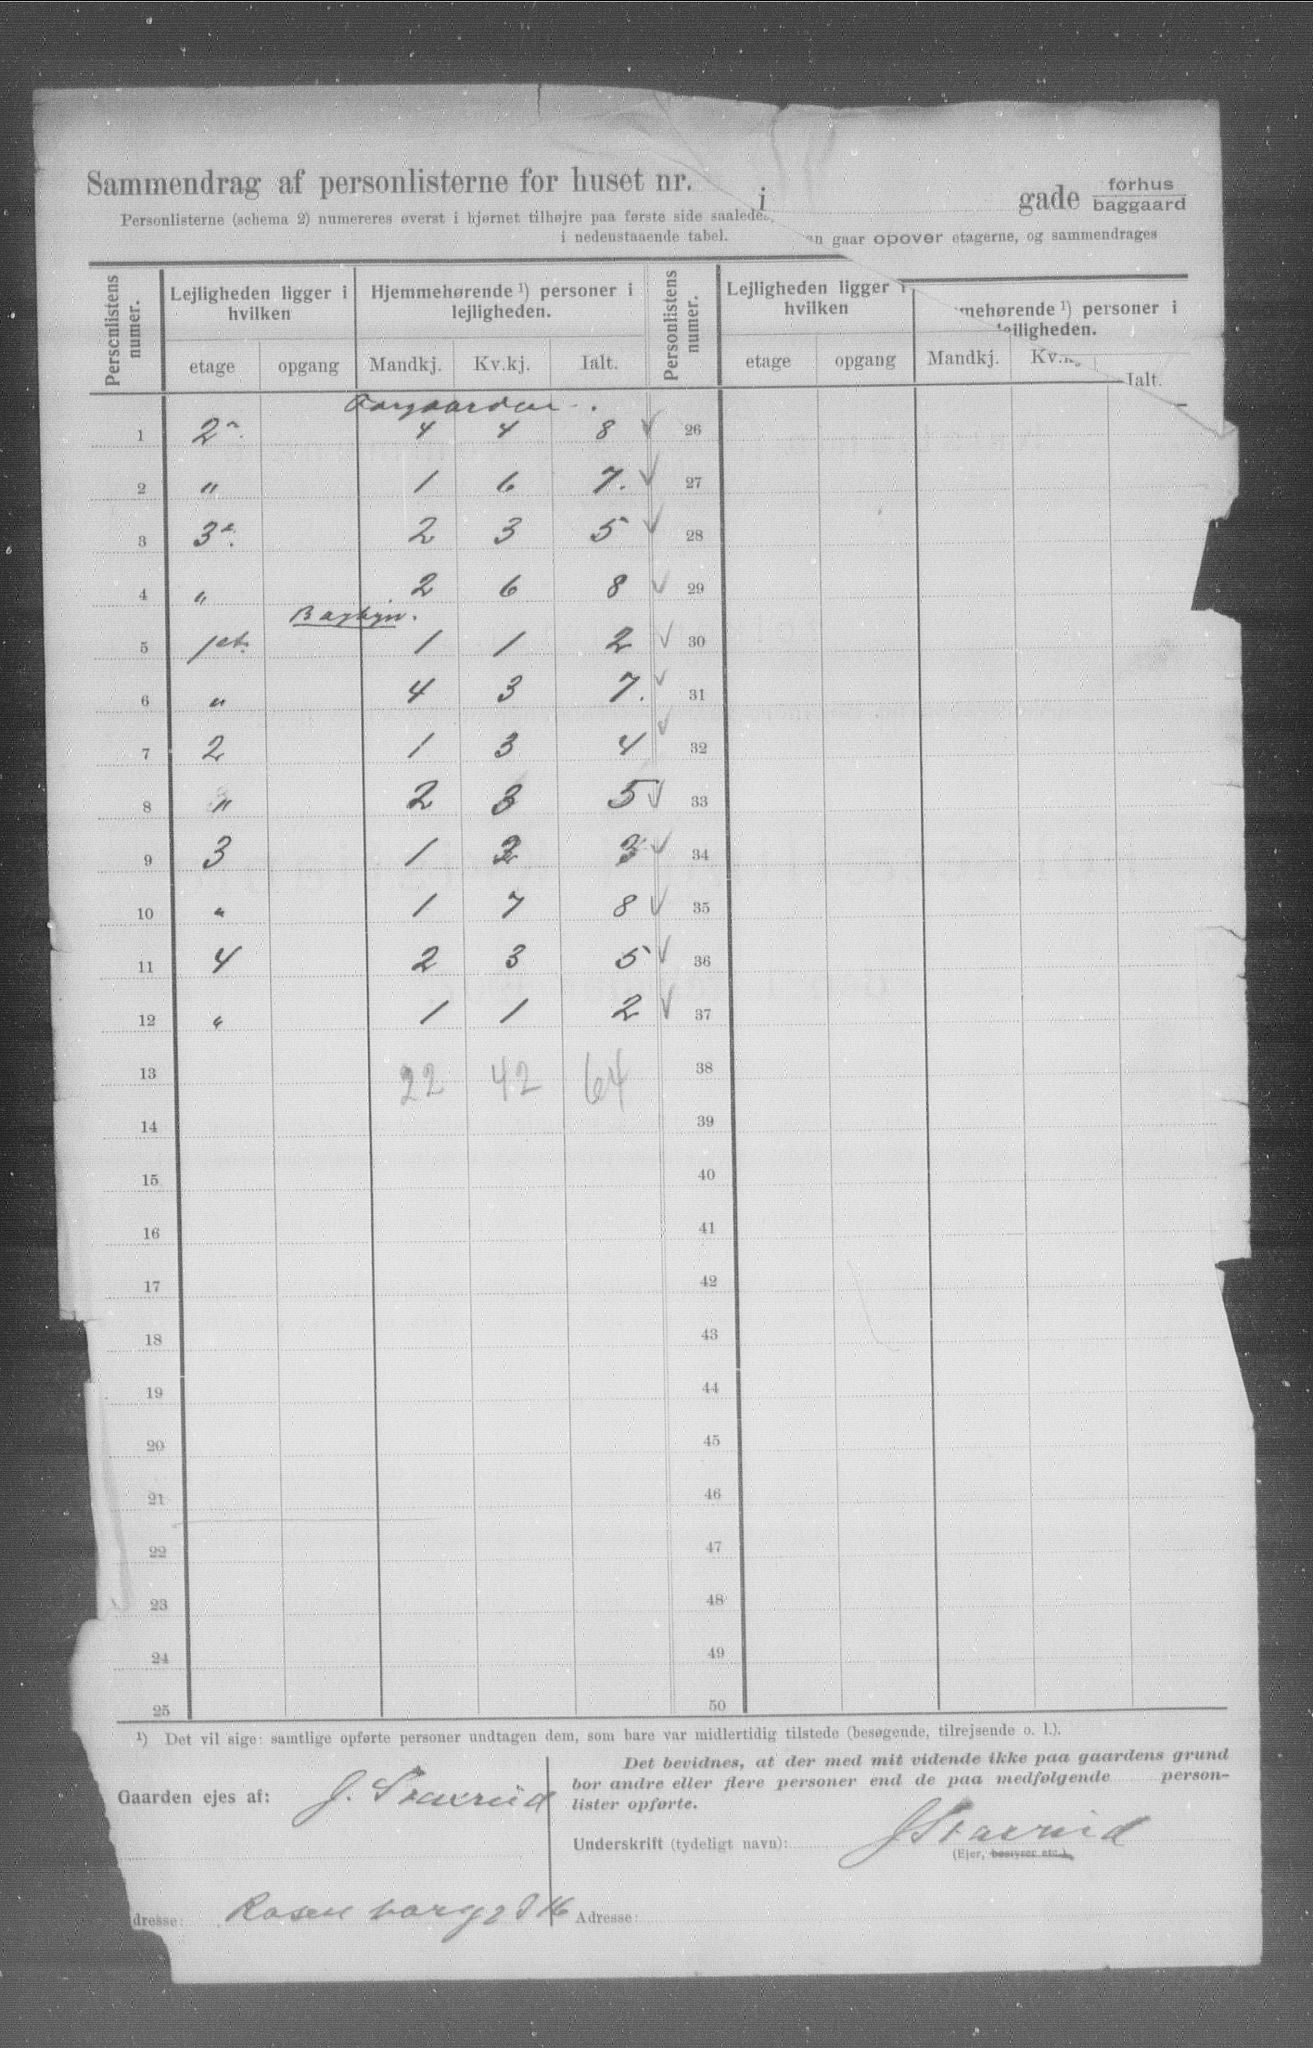 Sammendrag af personlisterne for huset nr. i gade forhus baggaard
Personlisterne (schema 2) numereres øverst i hjørnet tilhøjre paa første side saaledes
i nedenstaaende tabel. gaar opover etagerne, og sammendrages
Personlistens numer. Lejligheden ligger i hvilken Hjemmehørende ¹) personer i lejligheden. Personlistens numer. Lejligheden ligger i hvilken mmehørende ¹) personer i lejligheden.
etage opgang Mandkj. Kv.kj. Ialt. etage opgang Mandkj. Ialt.
1 2 4 4 8 26
2 " 1 6 7. 27
3 3 2 3 5 28
4 " 2 6 8 29
5 1 et. 1 1 2 30
6 " 4 3 7. 31
7 2 1 3 4 32
8 " 2 3 5 33
9 3 1 2 3 34
10 " 1 7 8 35
11 4 2 3 5 36
12 " 1 1 2 37
13 22 42 64 38
14 39
15 40
16 41
17 42
18 43
19 44
20 45
21 46
22 47
23 48
24 49
25 50
¹) Det vil sige: samtlige opførte personer undtagen dem, som bare var midlertidig tilstede (besøgende, tilrejsende o. l.).
Det bevidnes, at der med mit vidende ikke paa gaardens grund
bor andre eller flere personer end de paa medfølgende person-
lister opførte.
Gaarden ejes af: J. Staxrud
Underskrift (tydeligt navn): J Staxrud
(Ejer, bestyrer etc.)
dresse: Rosenborgg 16 Adresse: